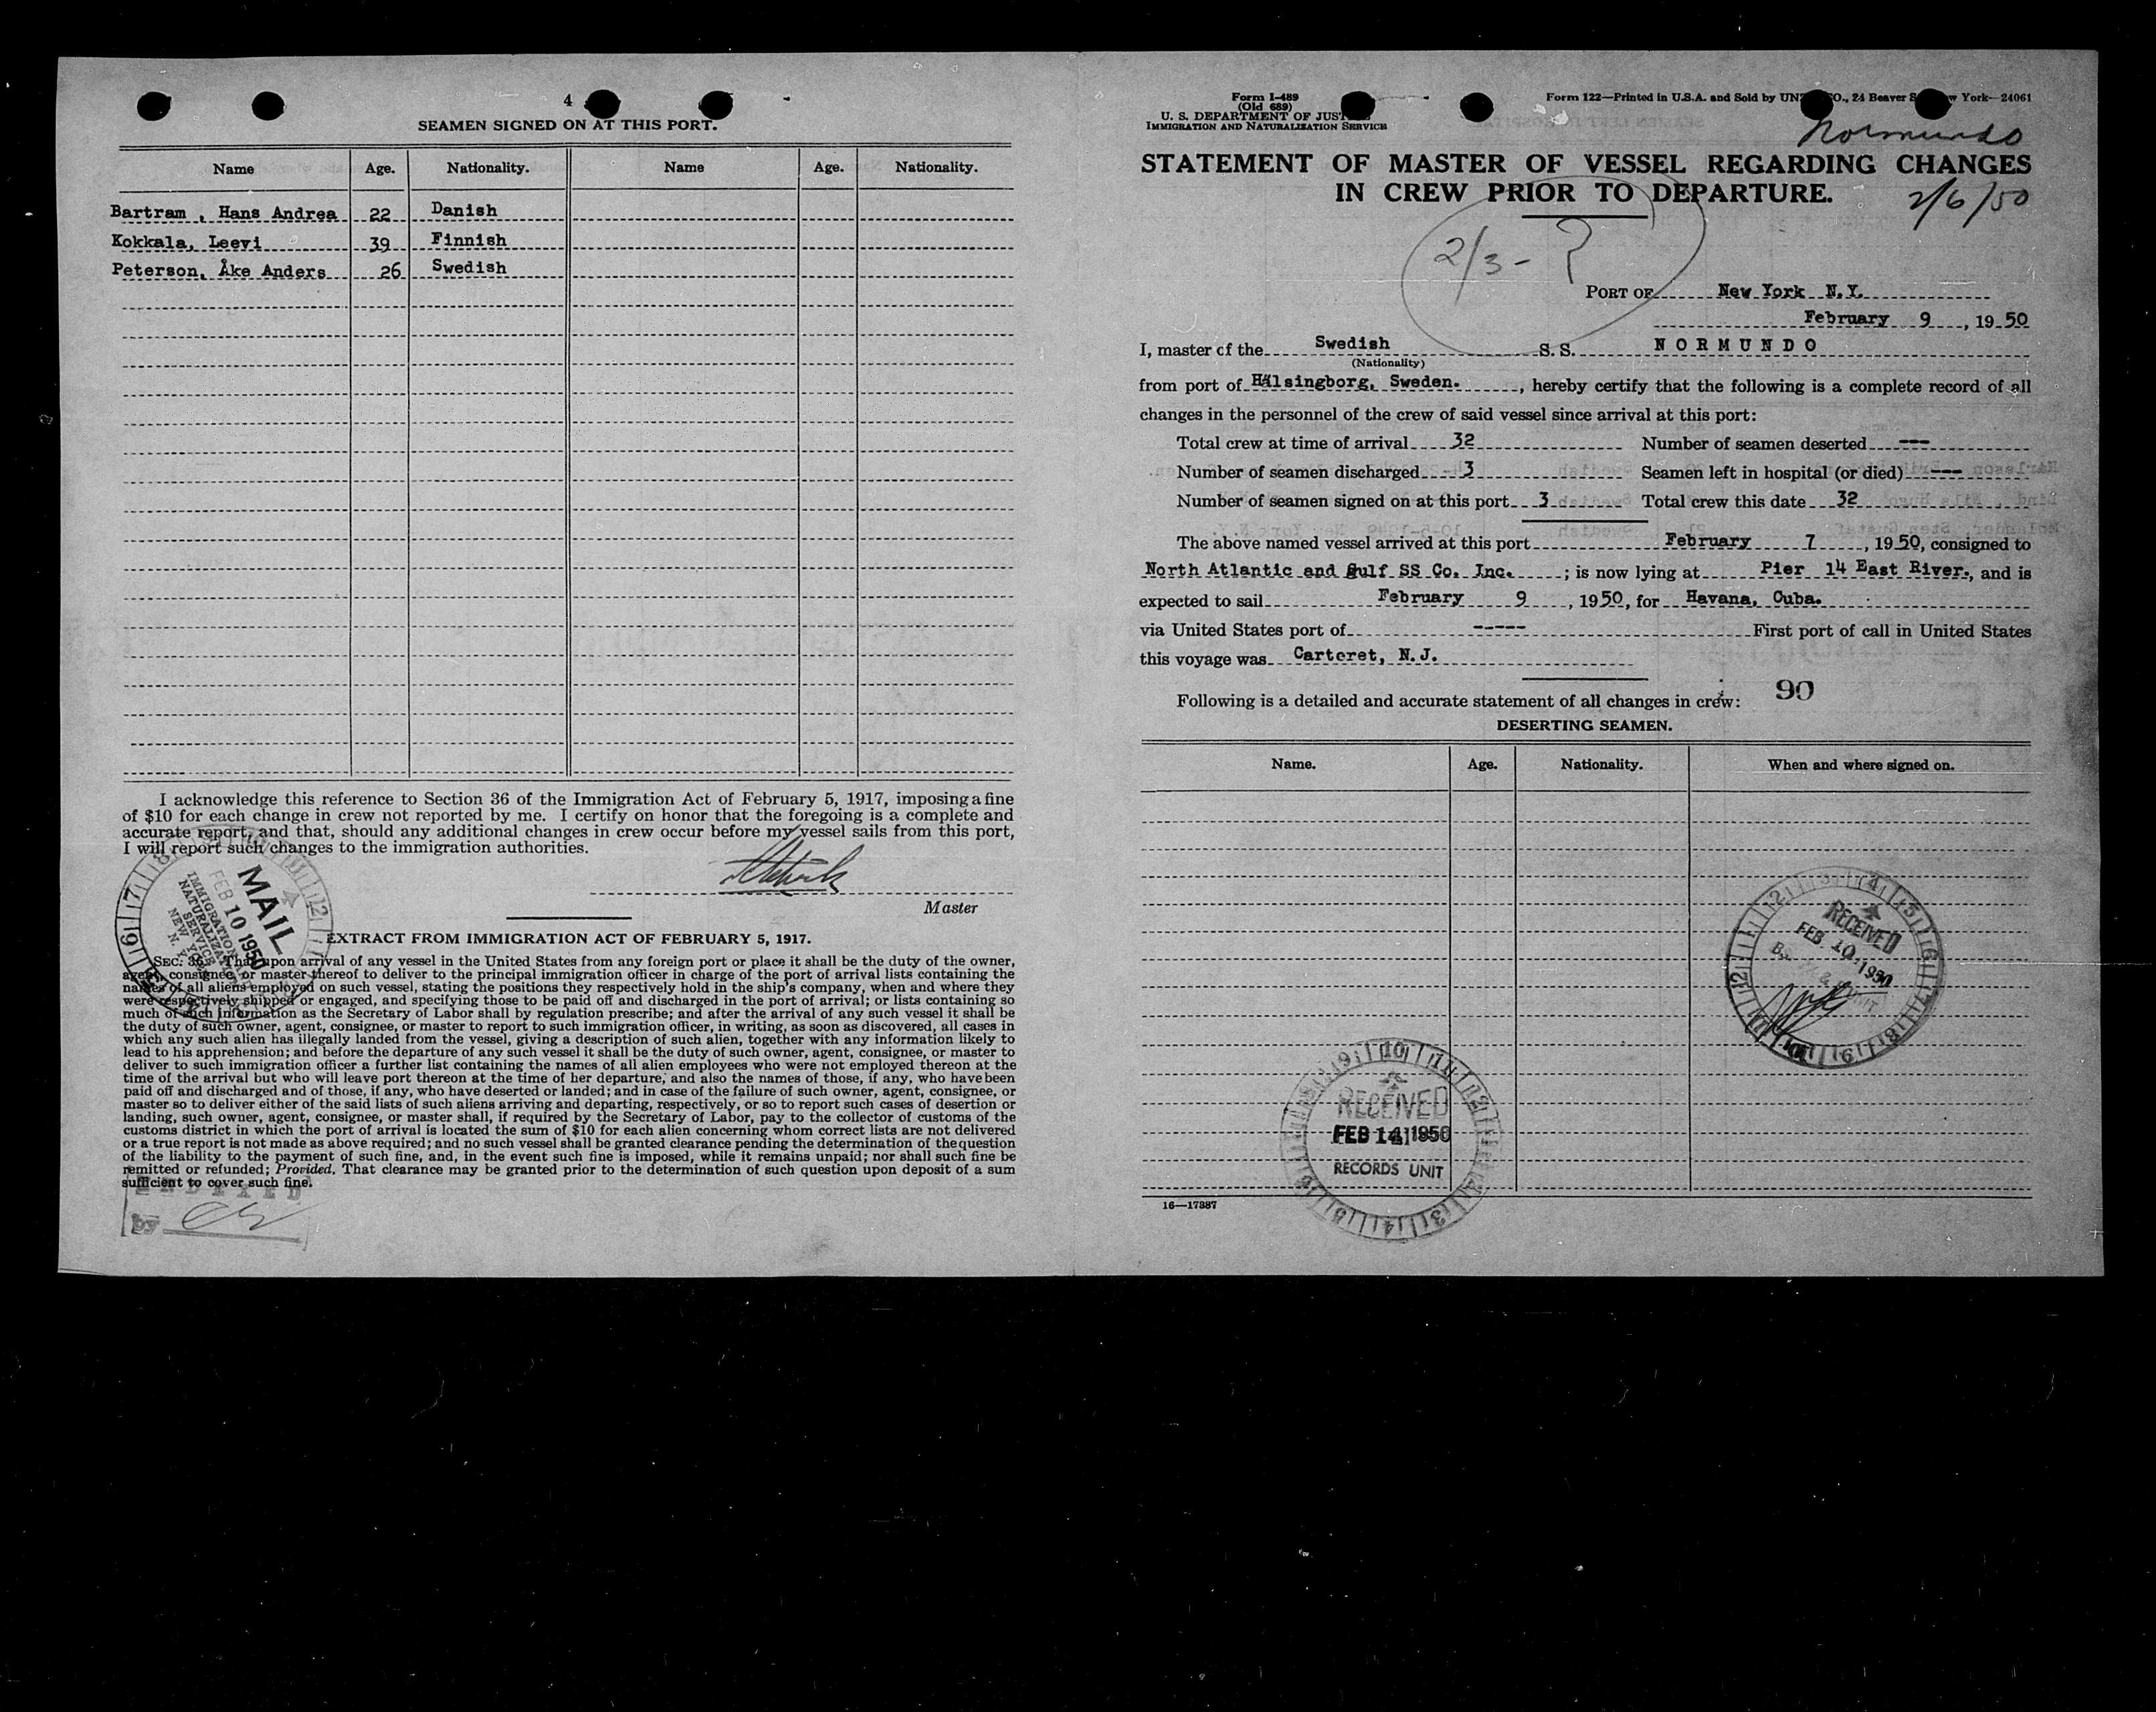 4
SEAMEN SIGNED ON AT THIS PORT.
Name Age. Nationality. Name Age. Nationality.
Bartram , Hans Andrea 22 Danish
Kokkala, Leevi 39 Finnish
Peterson, Åke Anders 26 Swedish
I acknowledge this reference to Section 36 of the Immigration Act of February 5, 1917, imposing a fine
of $10 for each change in crew not reported by me. I certify on honor that the foregoing is a complete and
accurate report, and that, should any additional changes in crew occur before my vessel sails from this port,
I will report such changes to the immigration authorities.
Master
MAIL
FEB 10 1950
IMMIGRATION
NATURALIZATION
SERVICE
NEW YORK
N.
EXTRACT FROM IMMIGRATION ACT OF FEBRUARY 5, 1917.
SEC. 36. That upon arrival of any vessel in the United States from any foreign port or place it shall be the duty of the owner,
agent, consignee, or master thereof to deliver to the principal immigration officer in charge of the port of arrival lists containing the
names of all aliens employed on such vessel, stating the positions they respectively hold in the ship's company, when and where they
were respectively shipped or engaged, and specifying those to be paid off and discharged in the port of arrival; or lists containing so
much of such information as the Secretary of Labor shall by regulation prescribe; and after the arrival of any such vessel it shall be
the duty of such owner, agent, consignee, or master to report to such immigration officer, in writing, as soon as discovered, all cases in
which any such alien has illegally landed from the vessel, giving a description of such alien, together with any information likely to
lead to his apprehension; and before the departure of any such vessel it shall be the duty of such owner, agent, consignee, or master to
deliver to such immigration officer a further list containing the names of all alien employees who were not employed thereon at the
time of the arrival but who will leave port thereon at the time of her departure, and also the names of those, if any, who have been
paid off and discharged and of those, if any, who have deserted or landed; and in case of the failure of such owner, agent, consignee, or
master so to deliver either of the said lists of such aliens arriving and departing, respectively, or so to report such cases of desertion or
landing, such owner, agent, consignee, or master shall, if required by the Secretary of Labor, pay to the collector of customs of the
customs district in which the port of arrival is located the sum of $10 for each alien concerning whom correct lists are not delivered
or a true report is not made as above required; and no such vessel shall be granted clearance pending the determination of the question
of the liability to the payment of such fine, and, in the event such fine is imposed, while it remains unpaid; nor shall such fine be
remitted or refunded; Provided, That clearance may be granted prior to the determination of such question upon deposit of a sum
sufficient to cover such fine.
by
Form I-489
(Old 689)
U. S. DEPARTMENT OF JUST
IMMIGRATION AND NATURALIZATION SERVICE
Form 122—Printed in U.S.A. and Sold by UNZ O., 24 Beaver S w York—24061
Normundo
STATEMENT OF MASTER OF VESSEL REGARDING CHANGES
IN CREW PRIOR TO DEPARTURE.
2/6/50
2/3 - ?
PORT OF New York N.Y.
February 9, 1950
I, master of the Swedish S.S. NORMUNDO
(Nationality)
from port of Hälsingborg, Sweden. , hereby certify that the following is a complete record of all
changes in the personnel of the crew of said vessel since arrival at this port:
Total crew at time of arrival 32 Number of seamen deserted ---
Number of seamen discharged - 3 Seamen left in hospital (or died) ---
Number of seamen signed on at this port 3 Total crew this date 32
The above named vessel arrived at this port February 7, 1950, consigned to
North Atlantic and Gulf SS Co. Inc. ; is now lying at Pier 14 East River., and is
expected to sail February 9, 1950, for Havana, Cuba.
via United States port of ----- First port of call in United States
this voyage was Carteret, N.J.
90
Following is a detailed and accurate statement of all changes in crew:
DESERTING SEAMEN.
Name. Age. Nationality. When and where signed on.
RECEIVED
FEB. 10 1950
RECEIVED
FEB 14 1950
RECORDS UNIT
16—17387